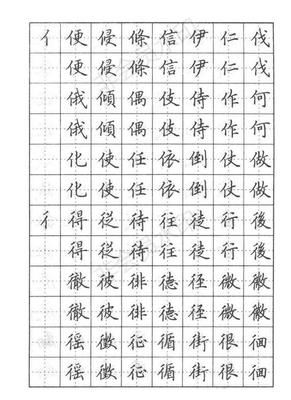 亻便侵條信伊仁伐
便侵條信伊仁伐
俄傾偶伎侍作何
俄傾偶伎侍作何
化使任依倒仗做
化使任依倒仗做
彳得從待往徒行後
得從待往徒行後
徹彼徘德徑微徽
徹彼徘德徑微徽
徭徵征循街很徊
徭徵征循街很徊